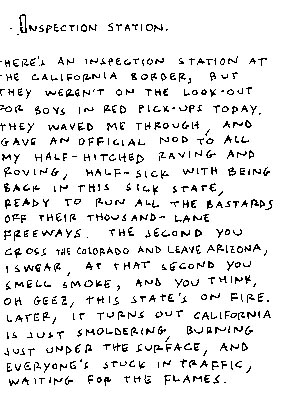 INSPECTION STATION.
HERE'S AN INSPECTION STATION AT
THE CALIFORNIA BORDER, BUT
THEY WEREN'T ON THE LOOK-OUT
FOR BOYS IN RED PICK-UPS TODAY.
THEY WAVED ME THROUGH, AND
GAVE AN OFFICIAL NOD TO ALL
MY HALF-HITCHED RAVING AND
ROVING, HALF-SICK WITH BEING
BACK IN THIS SICK STATE,
READY TO RUN ALL THE BASTARDS
OFF THEIR THOUSAND-LANE
FREEWAYS. THE SECOND YOU
CROSS THE COLORADO AND LEAVE ARIZONA,
I SWEAR, AT THAT SECOND YOU
SMELL SMOKE, AND YOU THINK,
OH GEEZ, THIS STATE'S ON FIRE.
LATER, IT TURNS OUT CALIFORNIA
IS JUST SMOLDERING, BURNING
JUST UNDER THE SURFACE, AND
EVERYONE'S STUCK IN TRAFFIC,
WAITING FOR THE FLAMES.